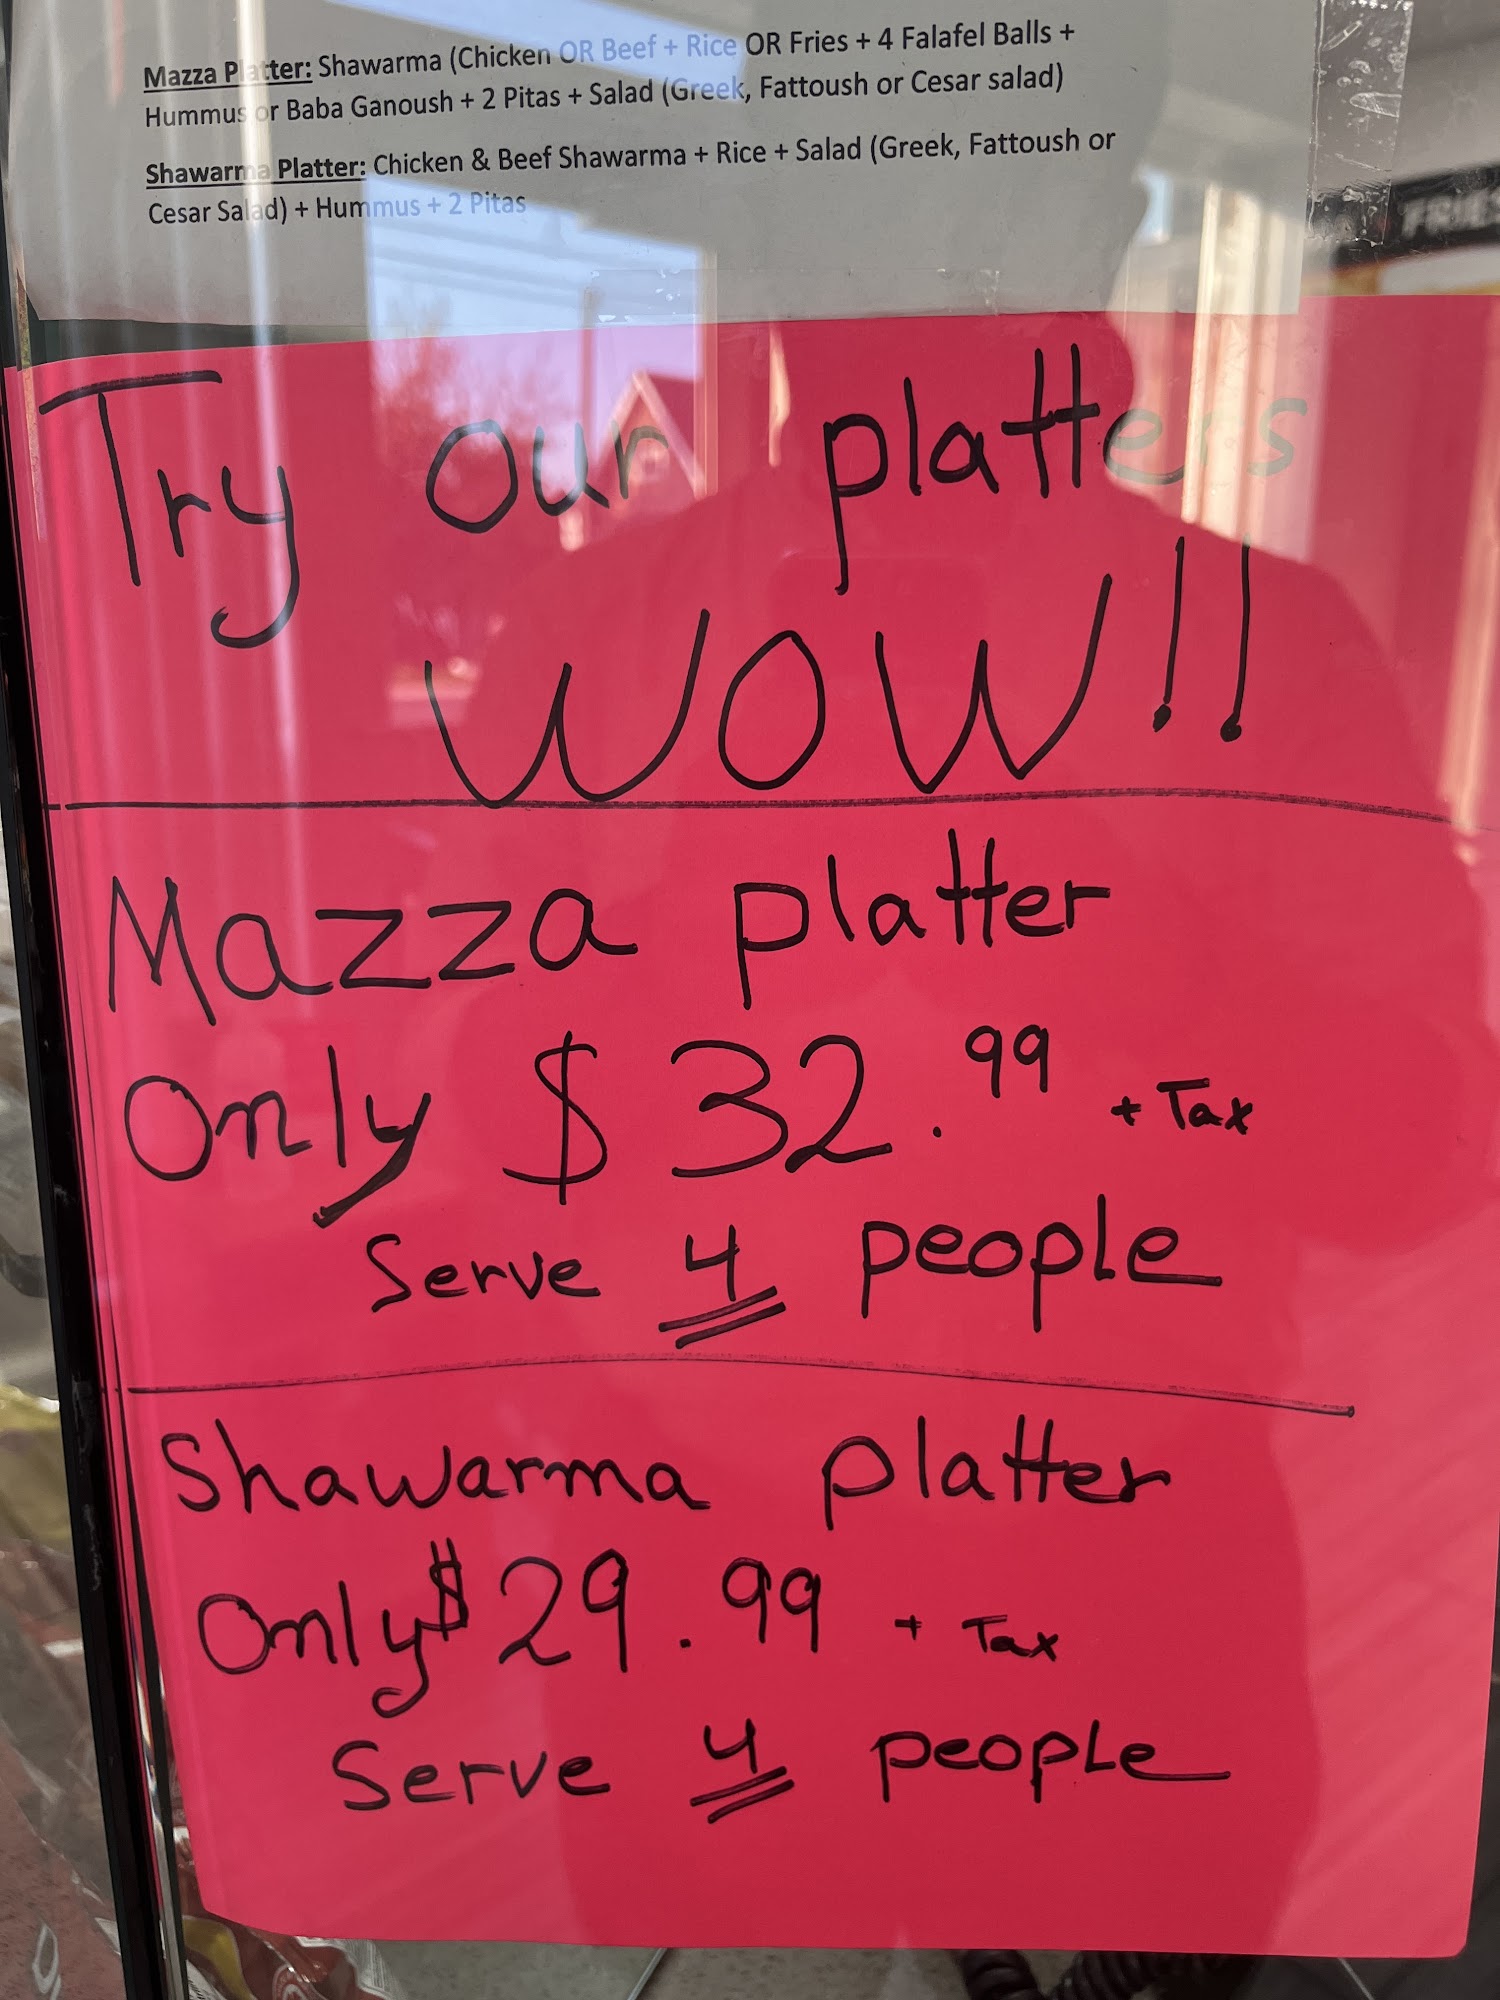 Mazza Platter: Shawarma (Chicken OR Beef + Rice OR Fries + 4 Falafel Balls +
Hummus or Baba Ganoush + 2 Pitas + Salad (Greek, Fattoush or Cesar salad)
Shawarma Platter: Chicken & Beef Shawarma + Rice + Salad (Greek, Fattoush or
Cesar Salad) + Hummus + 2 Pitas
FRIES
Try our platters
WOW!!
Mazza platter
Only $32.99 + Tax
Serve 4 people
Shawarma platter
Only $29.99 + Tax
Serve 4 people